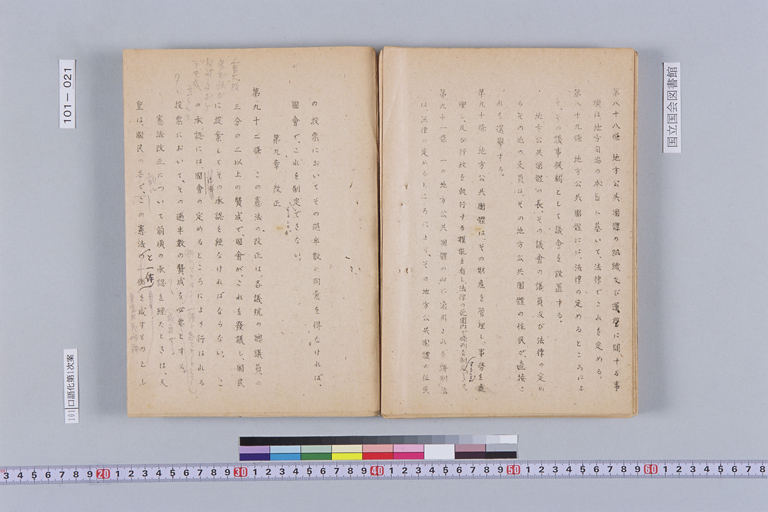 第八十八條 地方公共團體の組織及び運營に關する事
項は地方自治の本旨に基いて、法律でこれを定める。
第八十九條 地方公共團體には、法律の定めるところによ
り、その議事機關として議會を設置する。
地方公共團體の長、その議會の議員及び法律の定め
るその他の吏員は、その地方公共團體の住民が、直接こ
れを選擧する。
第九十條 地方公共團體は、その財產を管理し、事務を處
理し、及び行政を執行する權能を有し、法律の範圍內で條例を制定
第九十一條 一の地方公共團體のみに適用される特別法
は、法律の定めるところにより、その地方公共團體の住民
の投票においてその過半數の同意を得なければ、
國會で、これを制定できない。
することが
第九章 改正
第九十二條 この憲法の改正は、各議院の總議員の
三分の二以上の賛成で、國會が、これを發議し、國民
に提案してその承認を經なければならない。こ
の承認には國會の定めるところにより行はれる
投票において、その過半數の賛成を必要とする。
憲法改正について前項の承認を經たときは、天
皇は、國民の名で、この憲法の一部を成すものとし
と一体
国立国会図書館
101－021
101 口語化第1次案
3 4 5 6 7 8 9 20 1 2 3 4 5 6 7 8 9 30 1 2 3 4 5 6 7 8 9 40 1 2 3 4 5 6 7 8 9 50 1 2 3 4 5 6 7 8 9 60 1 2 3 4 5 6 7 8